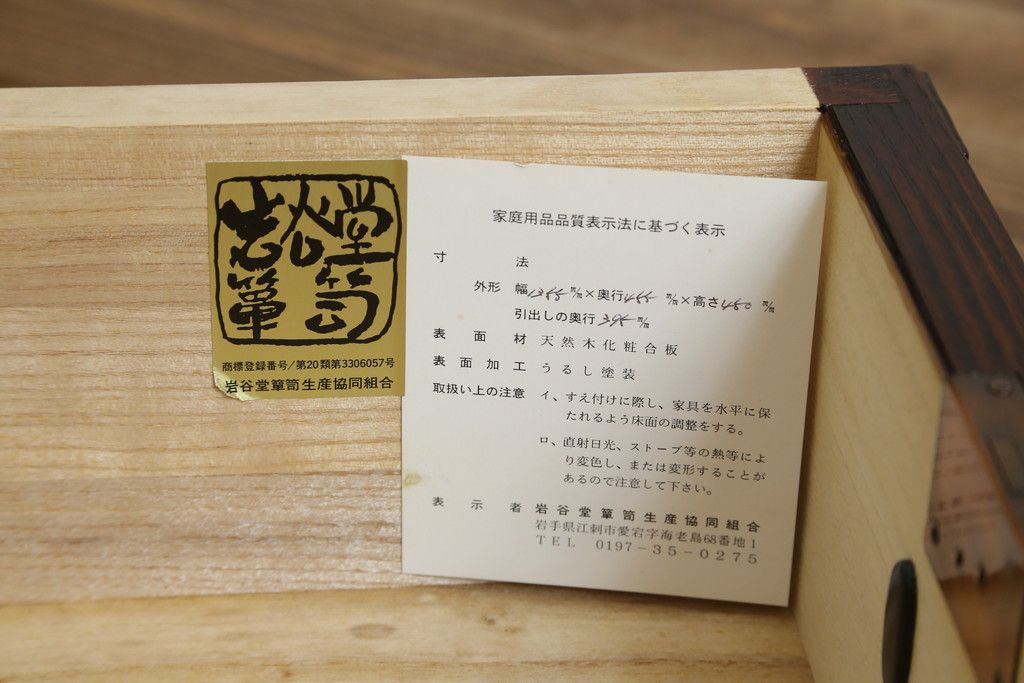 岩谷堂
箪笥
商標登録番号/第20類第3306057号
岩谷堂簞笥生産協同組合
家庭用品品質表示法に基づく表示
寸法
外形 幅1355m/m×奥行455m/m×高さ450m/m
引出しの奥行395m/m
表面材 天然木化粧合板
表面加工 うるし塗装
取扱い上の注意 イ、すえ付けに際し、家具を水平に保
たれるよう床面の調整をする。
ロ、直射日光、ストーブ等の熱等によ
り変色し、または変形することが
あるので注意して下さい。
表示者 岩谷堂簞笥生産協同組合
岩手県江刺市愛宕字海老島68番地1
TEL 0197-35-0275